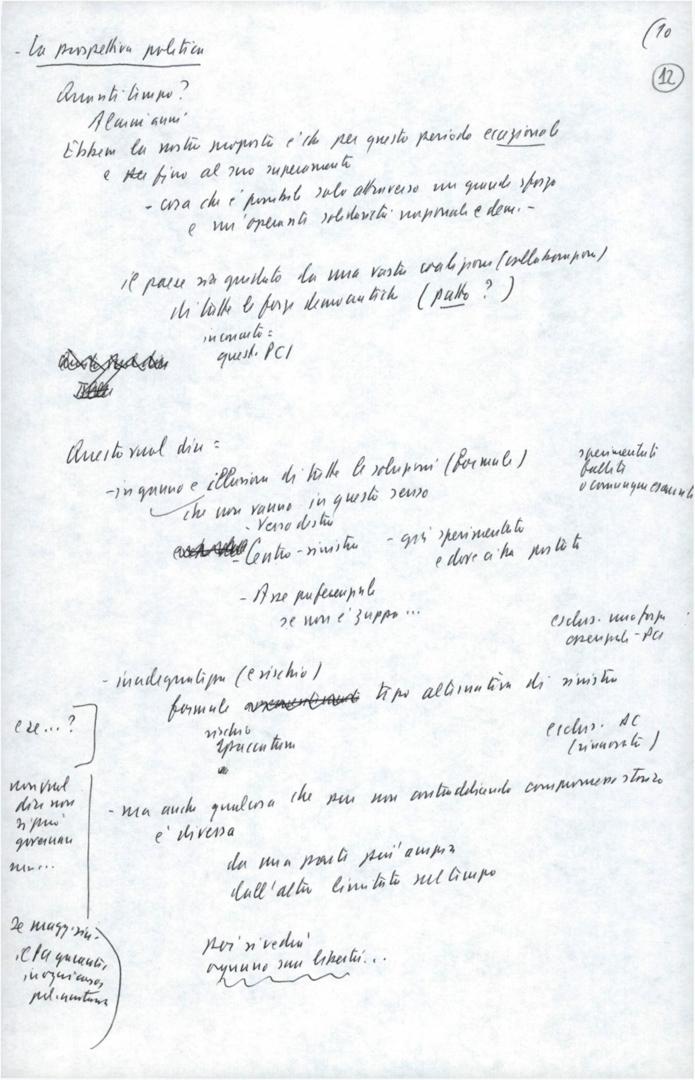 (10
12
- La prospettiva politica
Quanto tempo?
Alcuni anni
Ebbene la nostra proposta è che per questo periodo eccezionale
e fino al suo superamento
- cosa che è possibile solo attraverso un grande sforzo
e un'operante solidarietà nazionale e dem. -
il paese sia guidato da una vasta coalizione (collaborazione)
di tutte le forze democratiche (patto ?)
incontro =
quest. PCI
Questo vuol dire =
- inganno e illusione di tutte le soluzioni (formule)
che non vanno in questo senso
sperimentati
falliti
o comunque
- Verso destra
- Centro-sinistra - già sperimentato
e dove ci ha portati
- Asse preferenziale
se non è zuppa ...
esclus. una forza
essenziale - PCI
- inadeguatezza (e rischio)
formule tipo alternativa di sinistra
rischio
spaccatura
esclus. DC
(rinnovata)
e se...?
non vuol
dire non
si può
governare
ma...
- ma anche qualcosa che pur non contraddicendo compromesso storico
è diversa
da una parte più ampia
dall'altra limitata nel tempo
se magg. sin.
il PCI garante
in ogni caso
poi si vedrà
ognuno sua libertà...